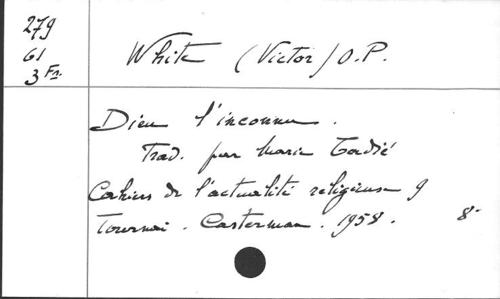 279
61
3 Fn.
White (Victor) O.P.
Dieu l'inconnu.
Trad. par Marie Tadié
Cahiers de l'actualité religieuse 9
Tournai. Casterman. 1958. 8°